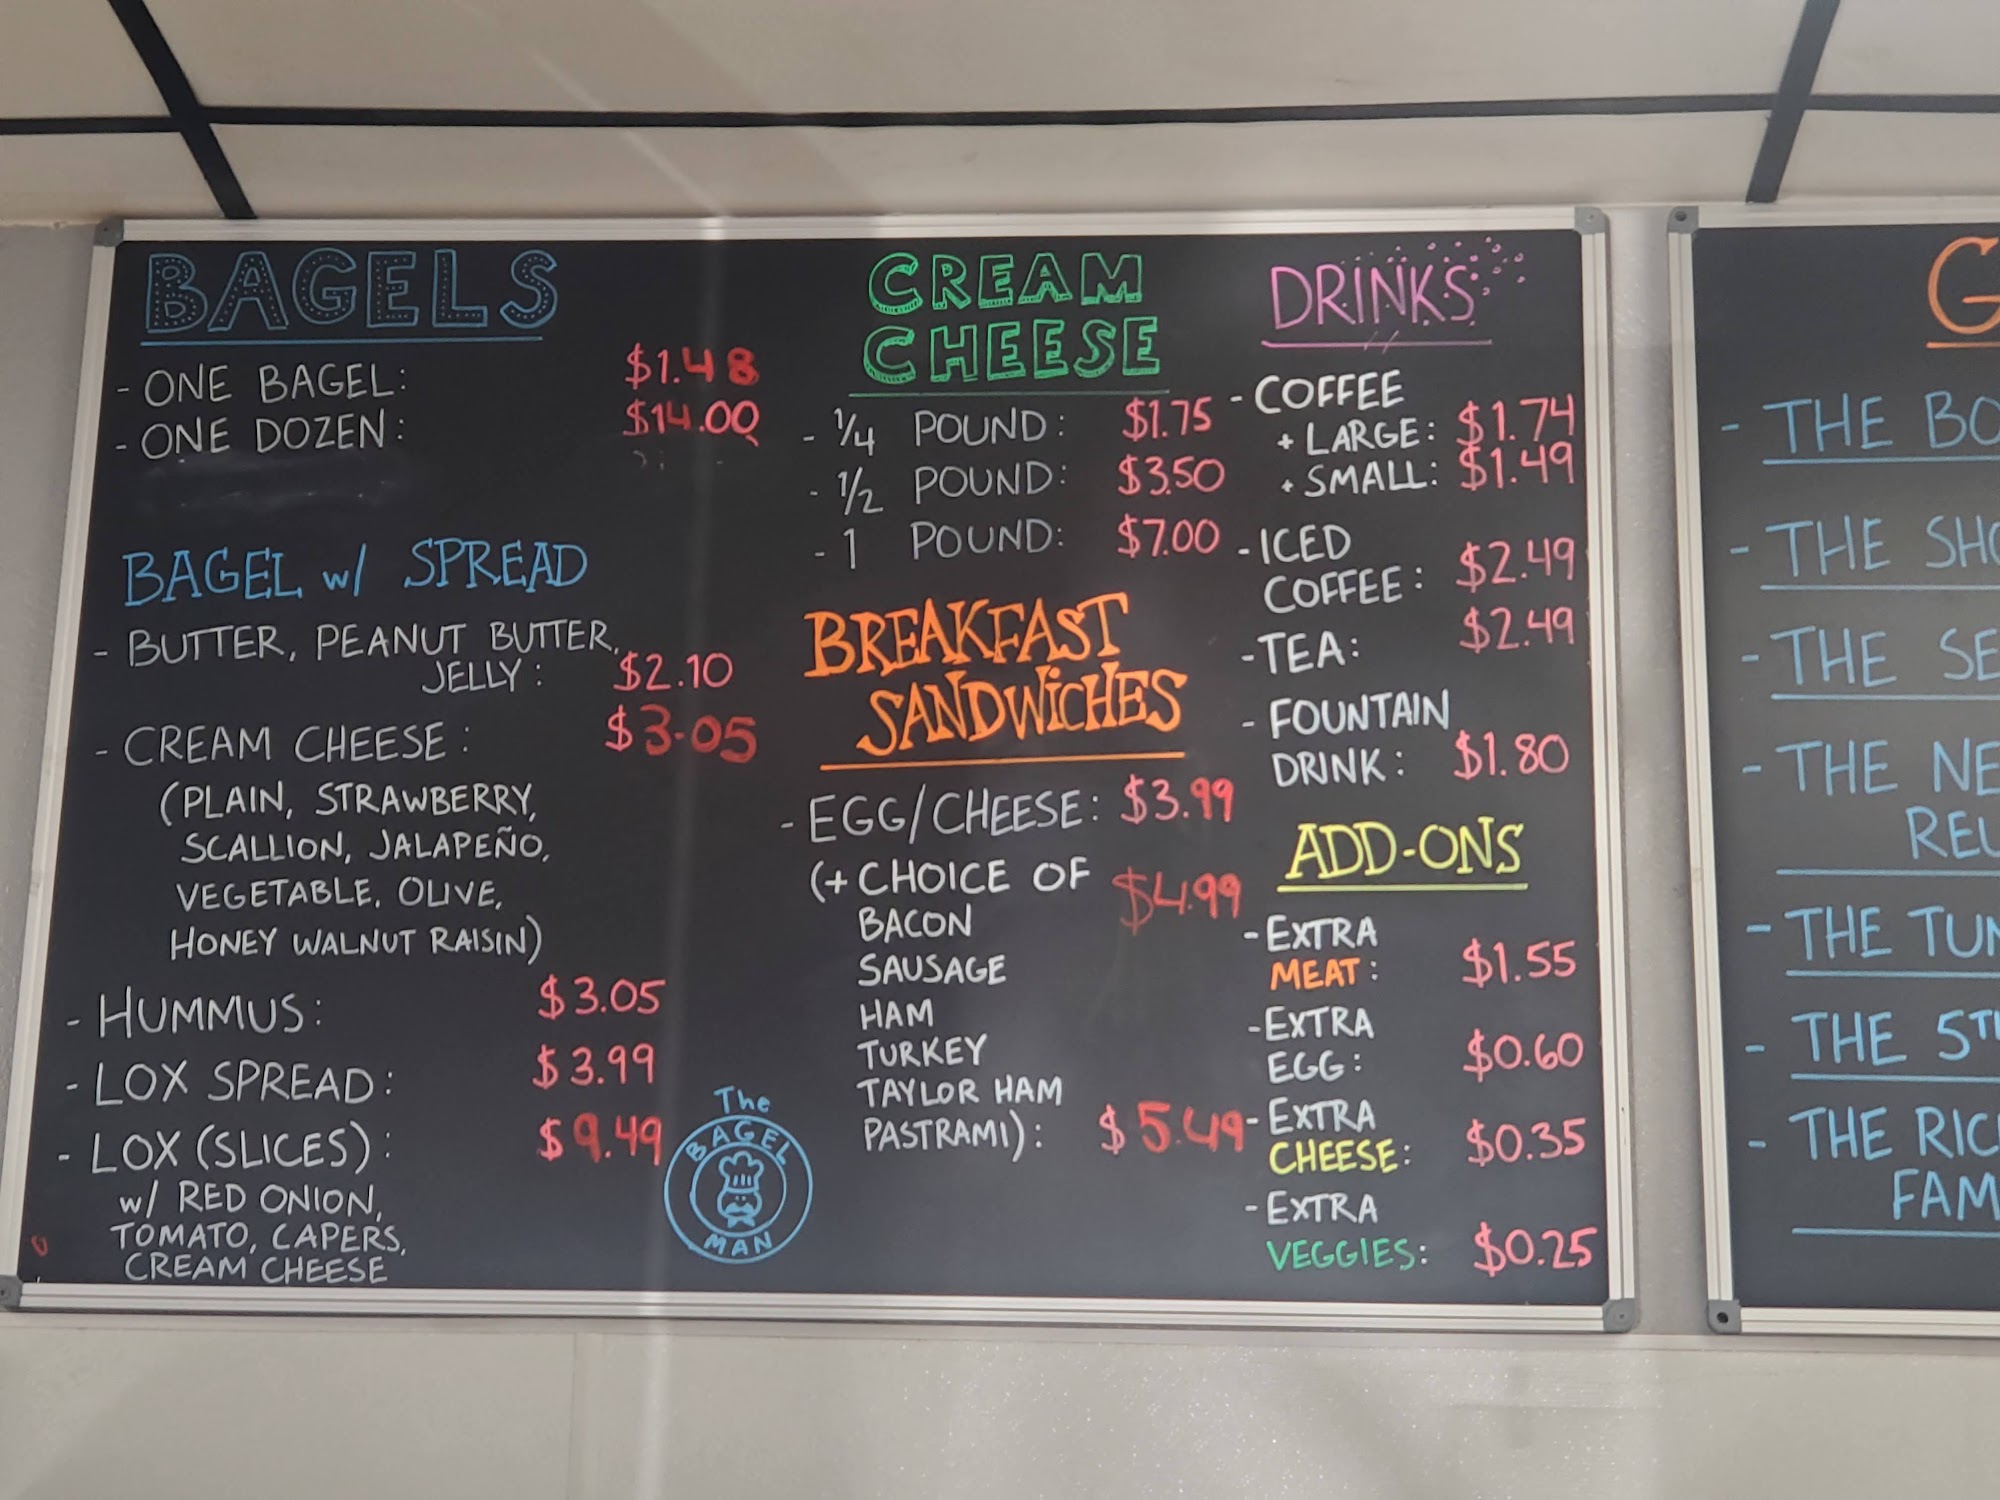 BAGELS
- ONE BAGEL: $1.48
- ONE DOZEN: $14.00
BAGEL w/ SPREAD
- BUTTER, PEANUT BUTTER,
JELLY: $2.10
- CREAM CHEESE: $3.05
(PLAIN, STRAWBERRY,
SCALLION, JALAPEÑO,
VEGETABLE, OLIVE,
HONEY WALNUT RAISIN)
- HUMMUS: $3.05
- LOX SPREAD: $3.99
- LOX (SLICES): $9.49
w/ RED ONION,
TOMATO, CAPERS,
CREAM CHEESE
The
BAGEL
MAN
CREAM
CHEESE
- 1/4 POUND: $1.75
- 1/2 POUND: $3.50
- 1 POUND: $7.00
BREAKFAST
SANDWiCHES
- EGG/CHEESE: $3.99
(+ CHOICE OF $4.99
BACON
SAUSAGE
HAM
TURKEY
TAYLOR HAM
PASTRAMI): $5.49
DRINKS
- COFFEE
+ LARGE: $1.74
+ SMALL: $1.49
- ICED
COFFEE: $2.49
- TEA: $2.49
- FOUNTAIN
DRINK: $1.80
ADD-ONS
- EXTRA
MEAT: $1.55
- EXTRA
EGG: $0.60
- EXTRA
CHEESE: $0.35
- EXTRA
VEGGIES: $0.25
- THE
- THE
- THE
- THE
- THE
- THE
- THE